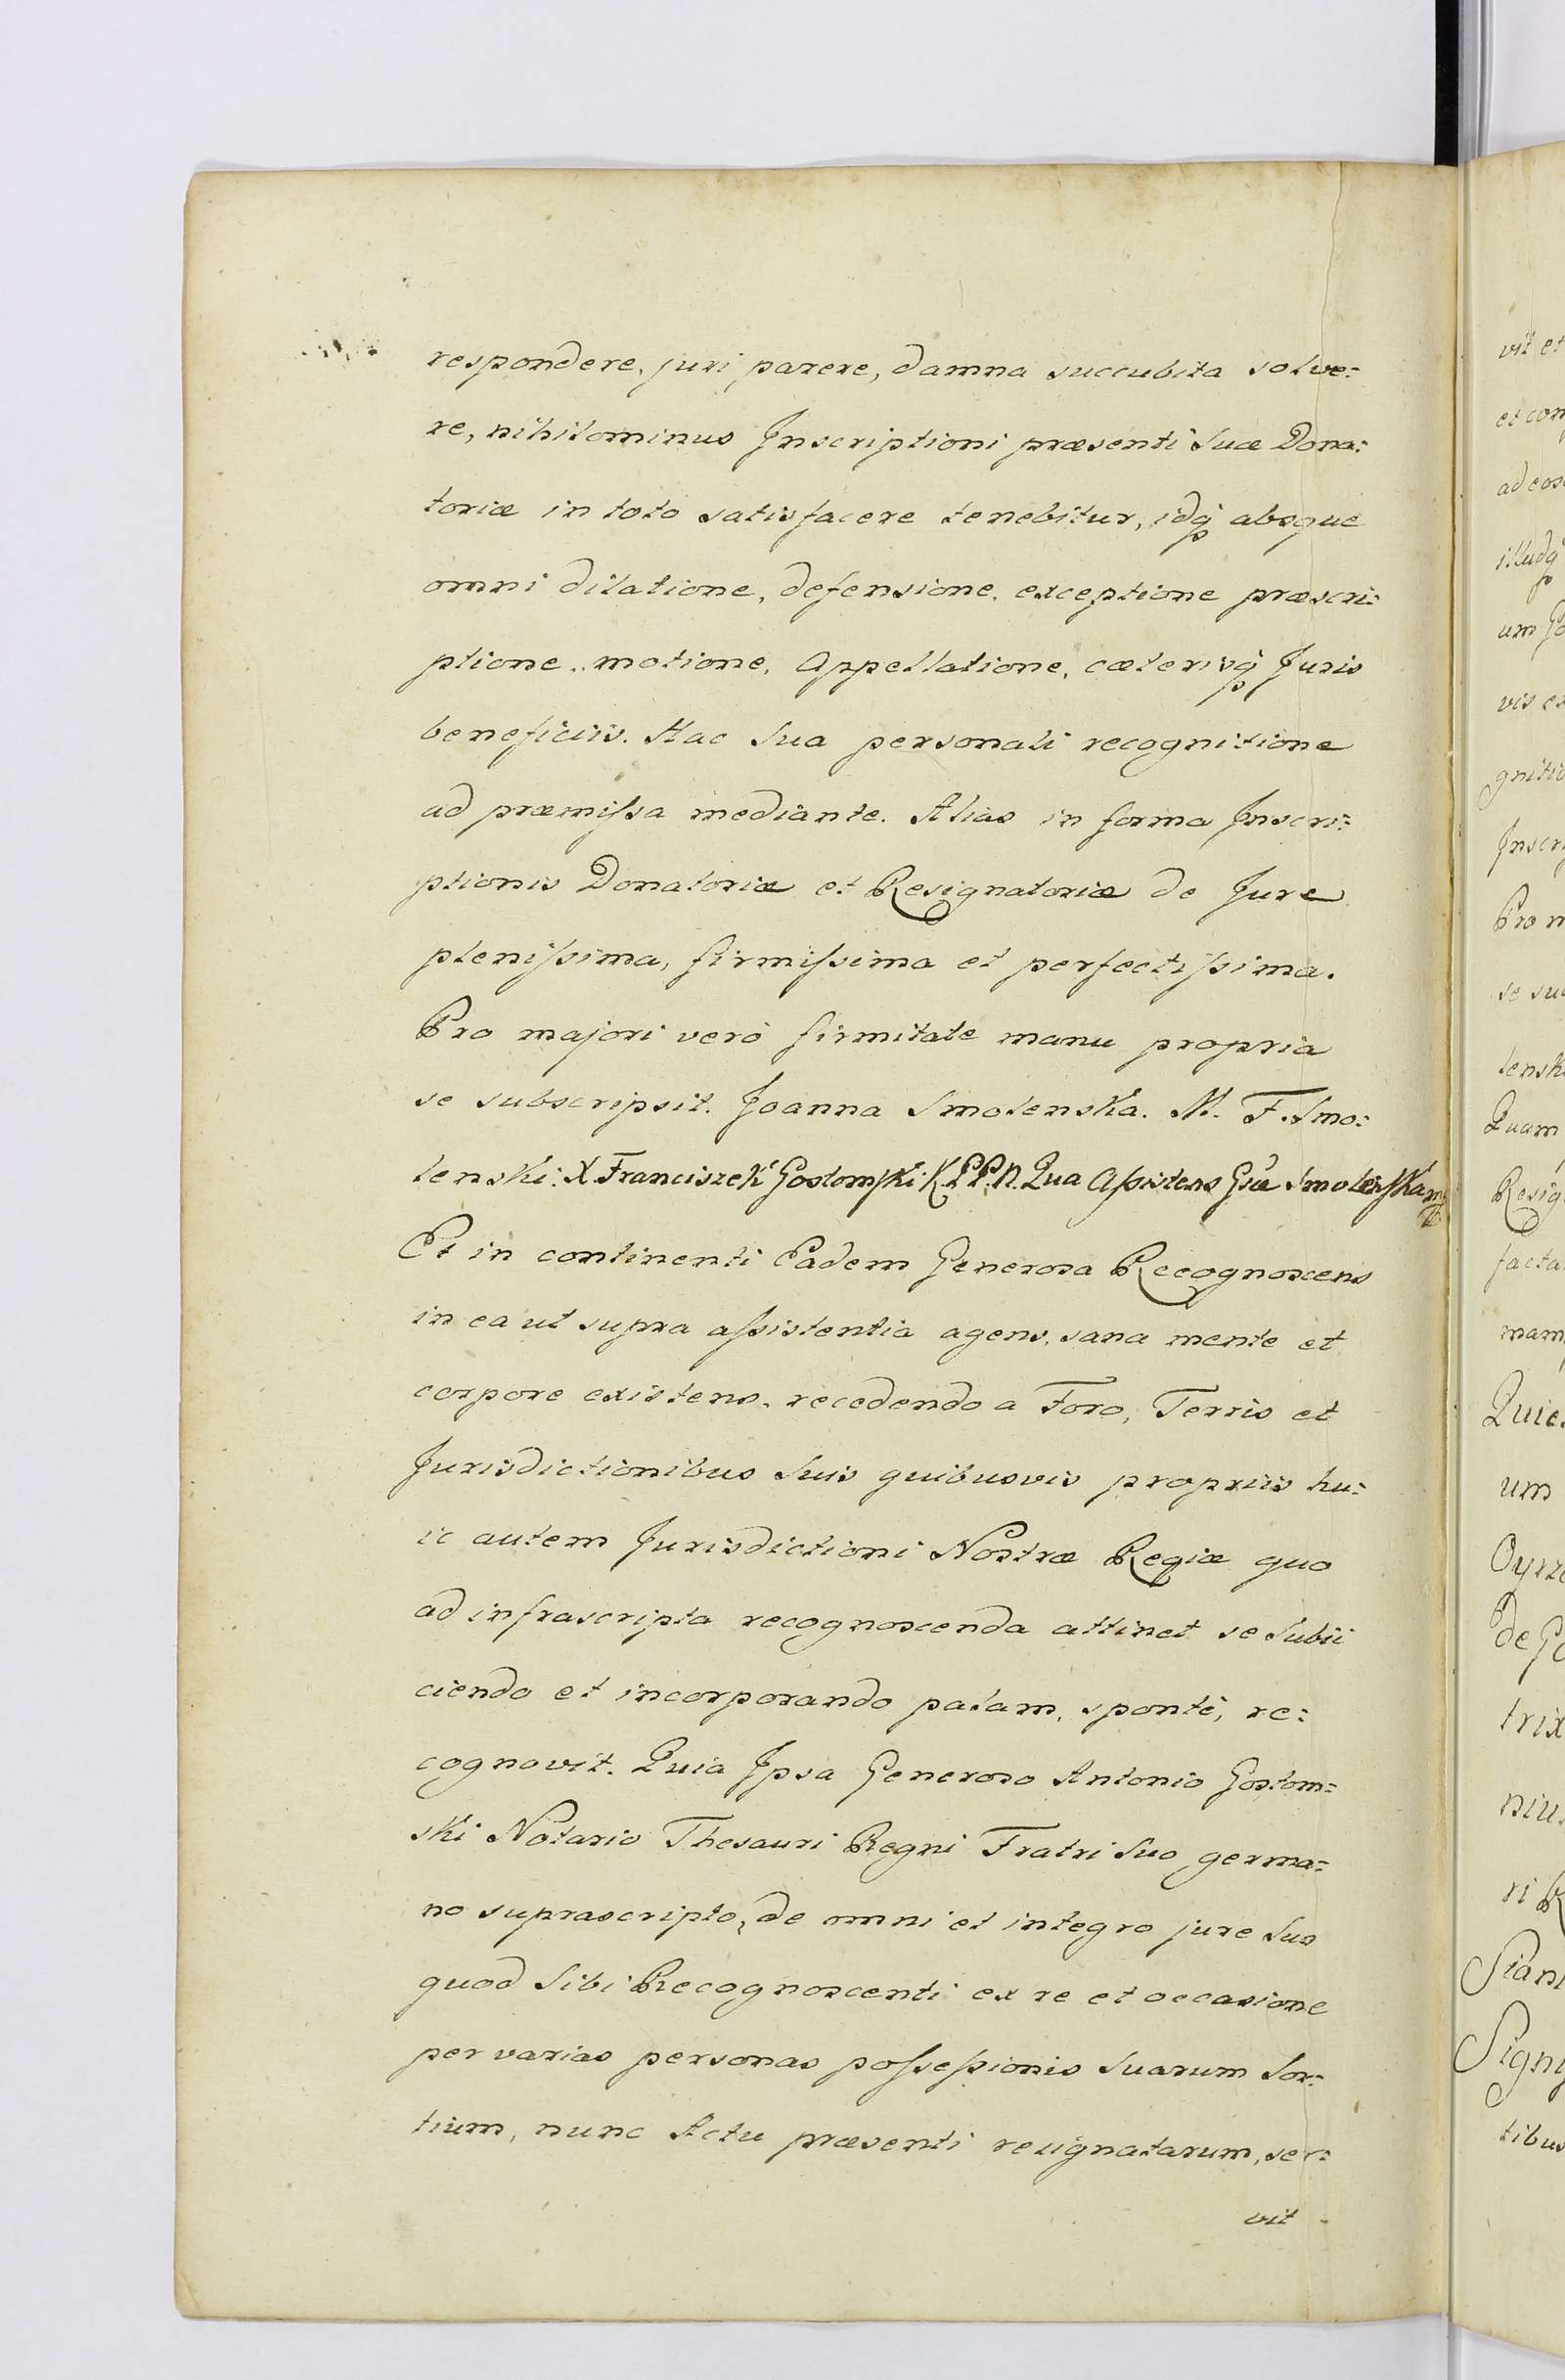 respondere, juri parere, damna succubita solve:
re, nihilominus Inscriptioni præsenti Suæ Dona:
toriæ in toto satisfacere tenebitur, idq absque
omni dilatione, defensione, exceptione præscri:
ptione, motione, Appellatione, cæterisq Juris
beneficiis. Hac Sua personali recognitione
ad præmissa mediante. Alias in forma Inscri:
ptionis Donatoriæ et Resignatoriæ de Jure
plenissima, firmissima et perfectissima.
Pro majori verò firmitate manu propria
se subscripsit. Joanna Smolenska. M. F. Smo:
lenski: X. Franciszek Gostomski K. P. P. N. Qua Assistens Gsæ Smolenska mp
Et in continenti Eadem Generosa Recognoscens
in ea ut supra assistentia agens, sana mente et
corpore existens, recedendo a Foro, Terris et
Jurisdictionibus Suis quibusvis propriis hu:
ic autem Jurisdictioni Nostræ Regiæ quo
ad infrascripta recognoscenda attinet se Subii
ciendo et incorporando palam, spontè, re:
cognovit. Quia Ipsa Generoso Antonio Gostom=
ski Notario Thesauri Regni Fratri Suo germa=
no suprascripto, de omni et integro jure Suo
quod Sibi Recognoscenti ex re et occasione
per varias personas possessionis Suarum Sor:
tium, nunc Actu præsenti resignatarum, ser:
vit
vit et
et con
ad eos
illudq
um Go
vis ex
gnitio
Inscri
Pro m
se su
lensk
Quam
Resig
facta
mam
Quie
um
Oyrz
de Go
trix
niu
ri R
Siani
Signy
tibus